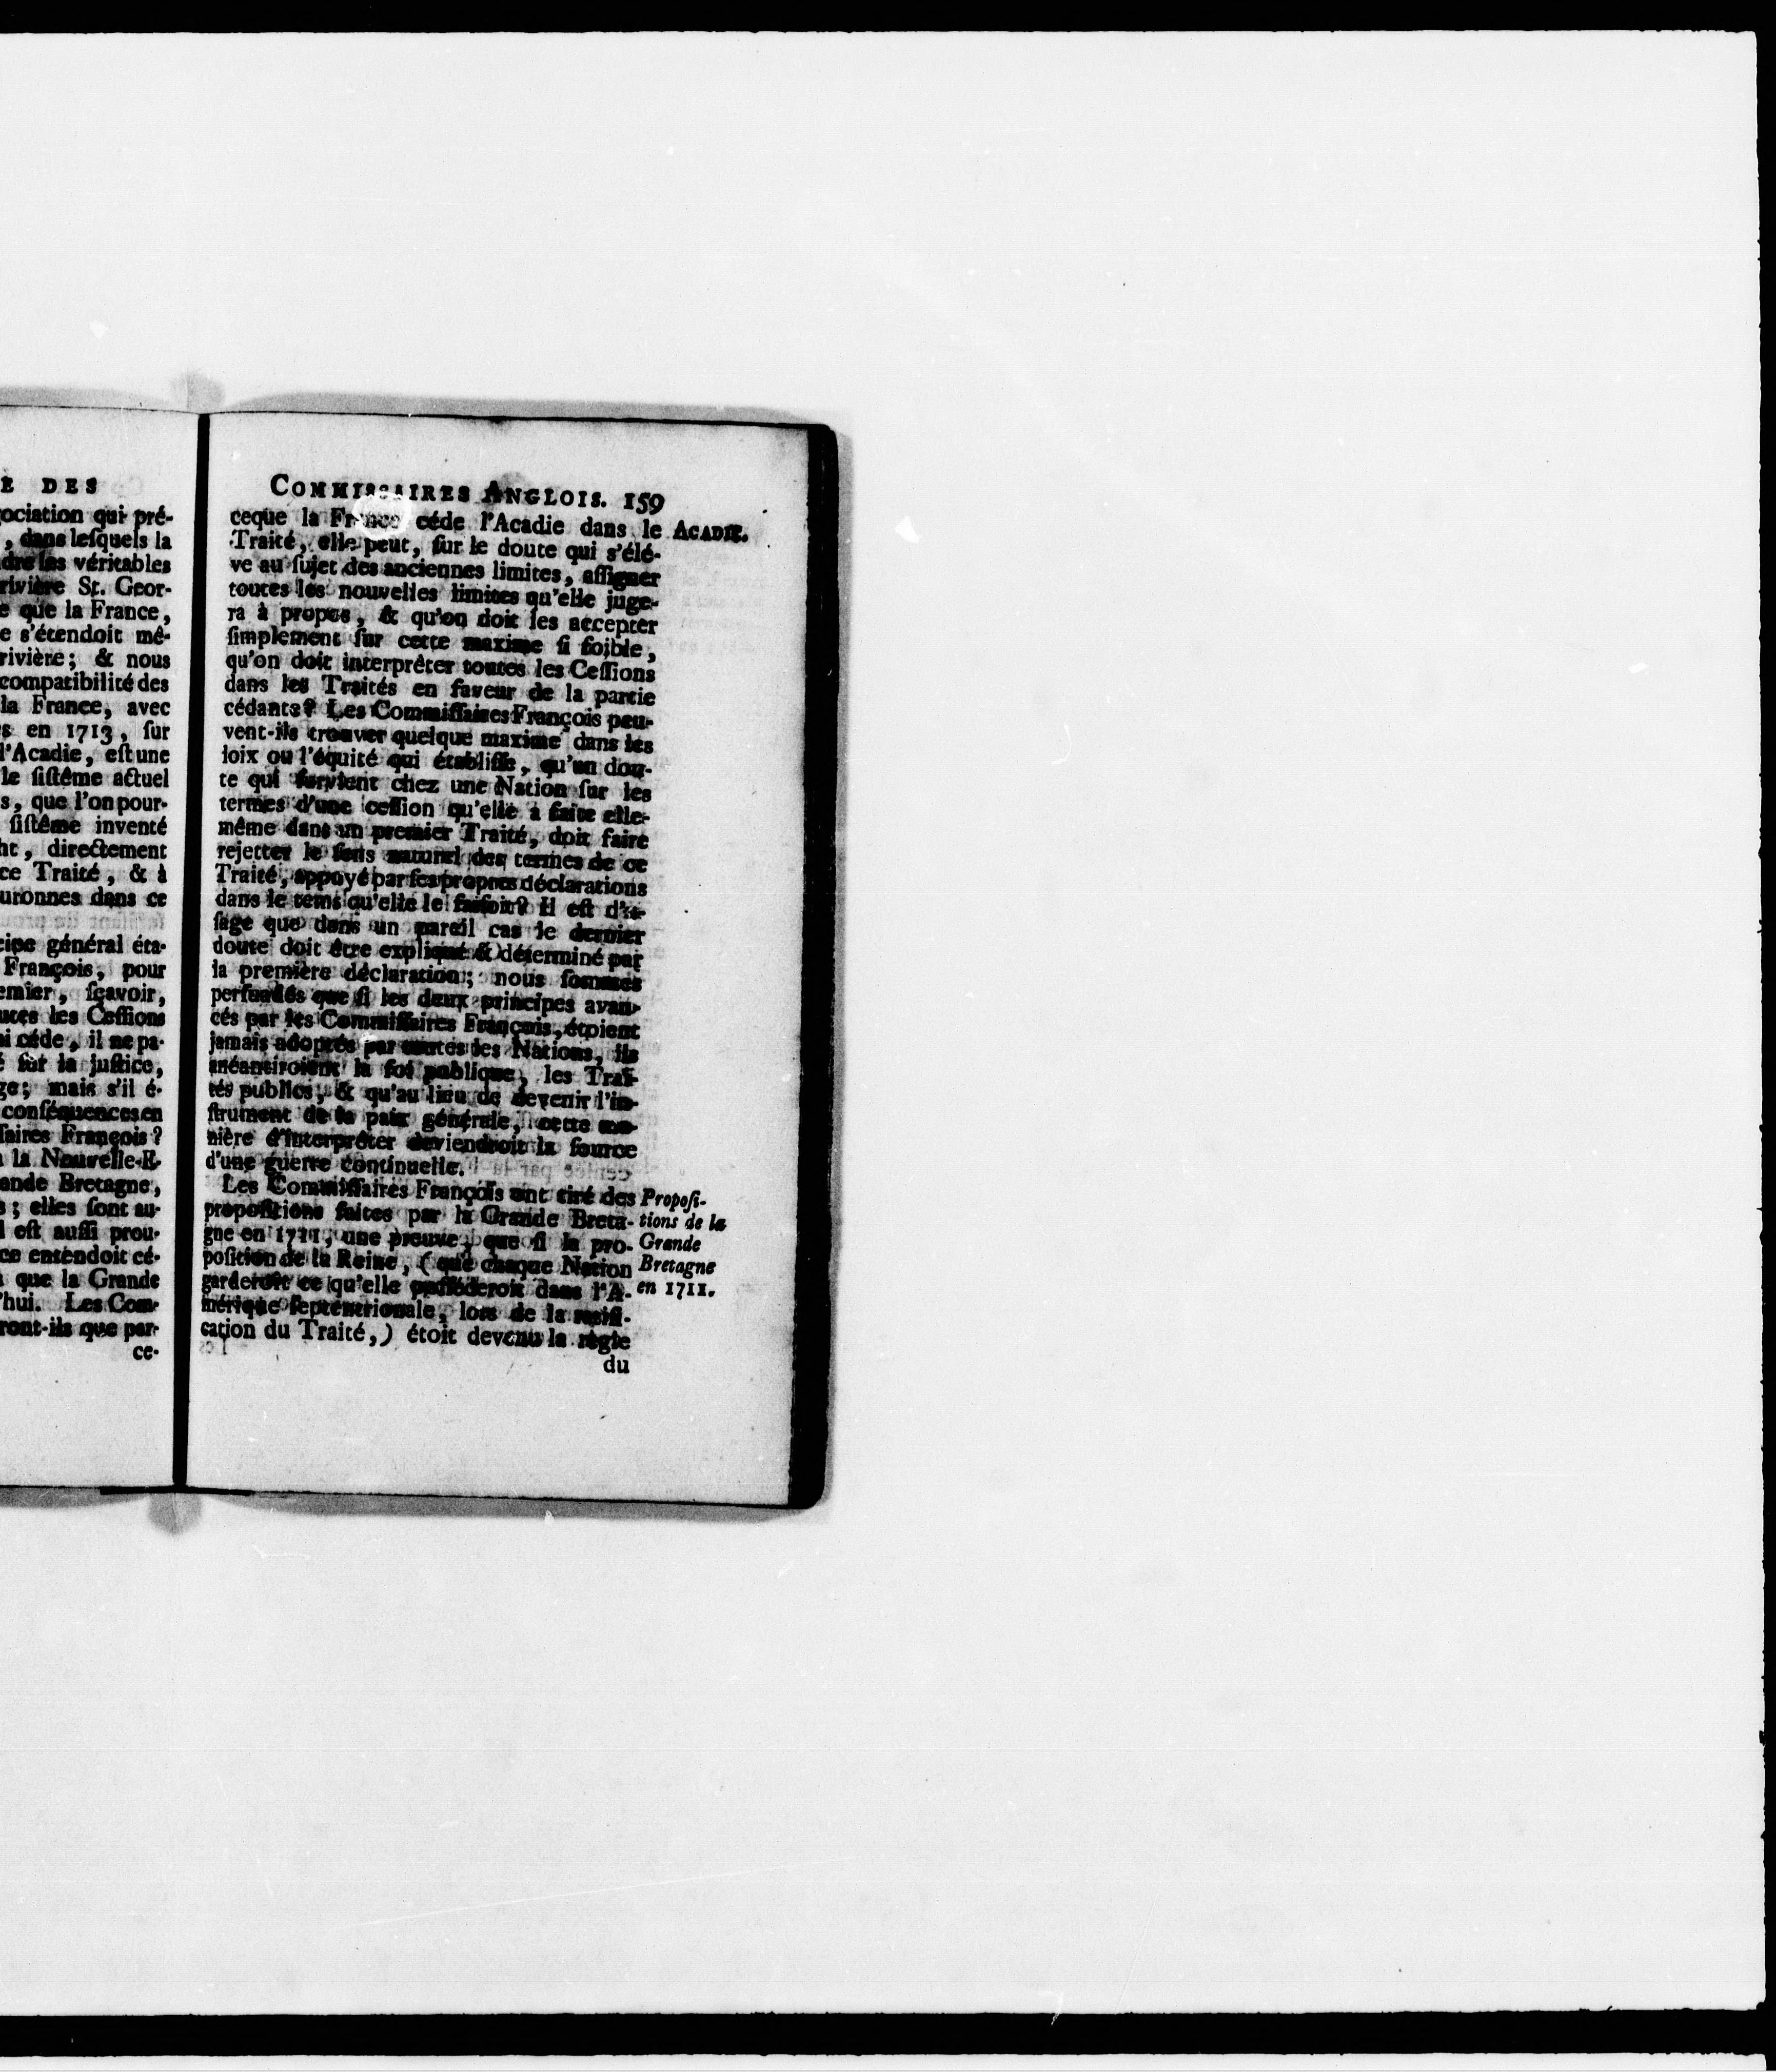 E DES
ociation qui pré-
, dans leſquels la
dre les véritables
rivière St. Geor-
e que la France,
e s'étendoit mê-
rivière; & nous
compatibilité des
la France, avec
s en 1713, ſur
l'Acadie, eſt une
le ſiſtême actuel
s, que l'on pour-
ſiſtême inventé
nt, directement
ce Traité, & à
uronnes dans ce
cipe général éta-
François, pour
emier, ſçavoir,
utes les Ceſſions
i céde, il ne pa-
é ſur la juſtice,
ge; mais s'il é-
conſéquences en
ſaires François?
la Nouvelle-E-
ande Bretagne,
s; elles ſont au-
l eſt auſſi prou-
ce entendoit cé-
que la Grande
'hui. Les Com-
ront-ils que par-
ce-
COMMISSAIRES ANGLOIS. 159
ceque la France céde l'Acadie dans le
ACADIE.
Traité, elle peut, ſur le doute qui s'élé-
ve au ſujet des anciennes limites, aſſigner
toutes les nouvelles limites qu'elle juge-
ra à propos, & qu'on doit les accepter
ſimplement ſur cette maxime ſi foible,
qu'on doit interprêter toutes les Ceſſions
dans les Traités en faveur de la partie
cédante? Les Commiſſaires François peu-
vent-ils trouver quelque maxime dans les
loix ou l'équité qui établiſſe, qu'un dou-
te qui ſurvient chez une Nation ſur les
termes d'une ceſſion qu'elle a faite elle-
même dans un premier Traité, doit faire
rejetter le ſens naturel des termes de ce
Traité, appoyé par ſes propres déclarations
dans le tems qu'elle le faiſoit? Il eſt d'u-
ſage que dans un pareil cas le dernier
doute doit être expliqué & déterminé par
la première déclaration; nous ſommes
perſuadés que ſi les deux principes avan-
cés par les Commiſſaires François, étoient
jamais adoptés par toutes les Nations, ils
anéantiroient la foi publique, les Trai-
tés publics, & qu'au lieu de devenir l'in-
ſtrument de la paix générale, cette ma-
nière d'interprêter deviendroit la ſource
d'une guerre continuelle.
Les Commiſſaires François ont tiré des
propoſitions faites par la Grande Breta-
gne en 1711, une preuve, que ſi la pro-
poſition de la Reine, (que chaque Nation
garderoit ce qu'elle poſſéderoit dans l'A-
mérique ſeptentrionale, lors de la ratifi-
cation du Traité,) étoit devenu la règle
du
Propoſi-
tions de la
Grande
Bretagne
en 1711.